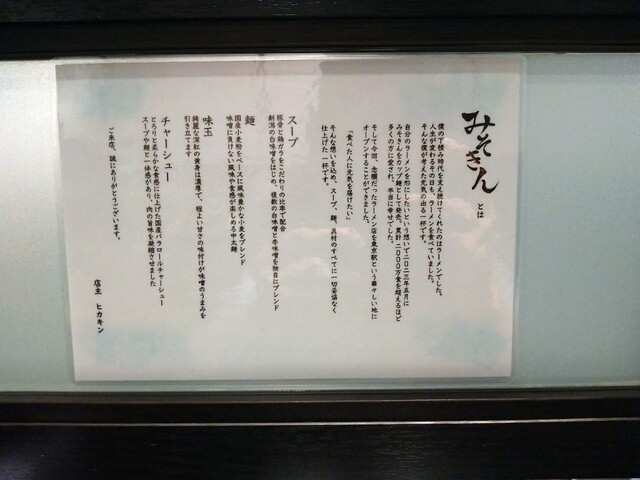 みそきんとは
僕の下積み時代を支え続けてくれたのはラーメンでした。
人生が変わるその日も、ラーメンを食べていました。
そんな僕が考えた元気の出る一杯です。
自分のラーメンを形にしたいという想いで二〇二三年五月に
みそきんをカップ麺として発売。累計二〇〇〇万食を超えるほど
多くの方に愛され、本当に幸せでした。
そして今回、念願だったラーメン店を東京駅という華々しい地に
オープンすることができました。
「食べた人に元気を届けたい」
そんな想いを込め、スープ、麺、具材のすべてに一切妥協なく
仕上げた一杯です。
スープ
豚骨と鶏ガラをこだわりの比率で配合
新潟の白味噌をはじめ、複数の白味噌と赤味噌を独自にブレンド
麺
国産小麦粉をベースに風味豊かな小麦をブレンド
味噌に負けない風味や食感が楽しめる中太麺
味玉
綺麗な深紅の黄身は濃厚で、程よい甘さの味付けが味噌のうまみを
引き立てます
チャーシュー
とろりと柔らかな食感に仕上げた国産バラロールチャーシュー
スープや麺と一体感があり、肉の旨味を凝縮させました
ご来店、誠にありがとうございます。
店主 ヒカキン